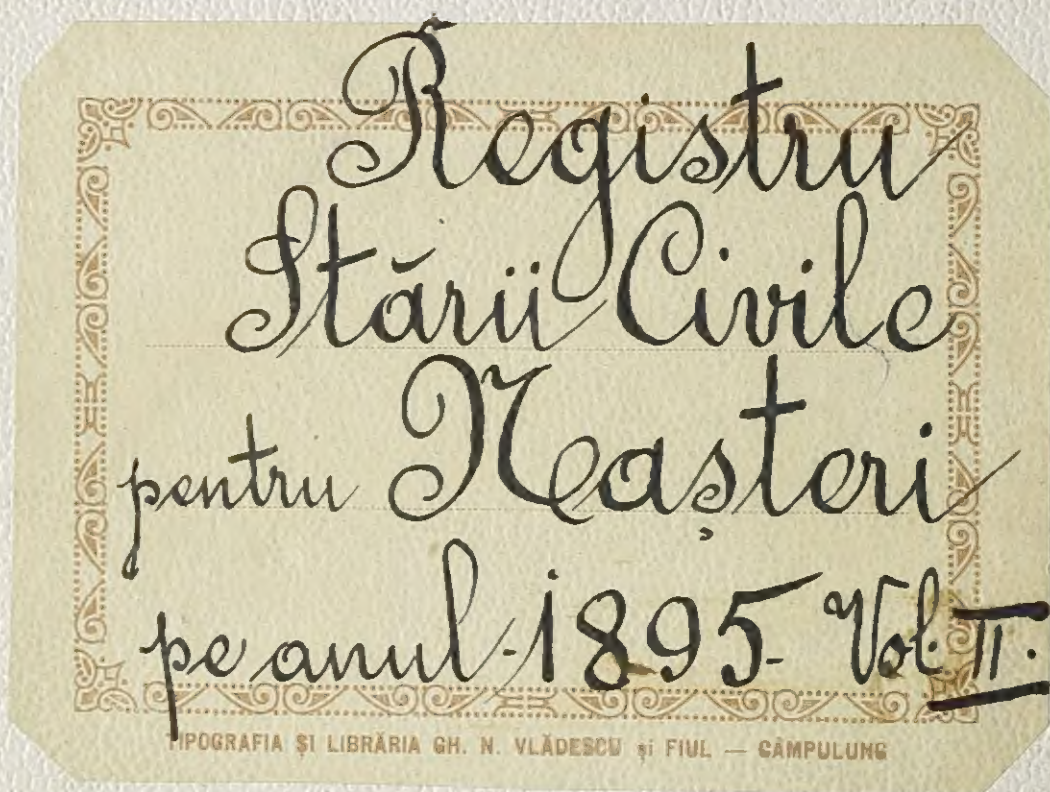 Registru
Stării Civile
pentru Nașteri
pe anul 1895 Vol. II.
TIPOGRAFIA ȘI LIBRĂRIA GH. N. VLĂDESCU și FIUL — CÂMPULUNG